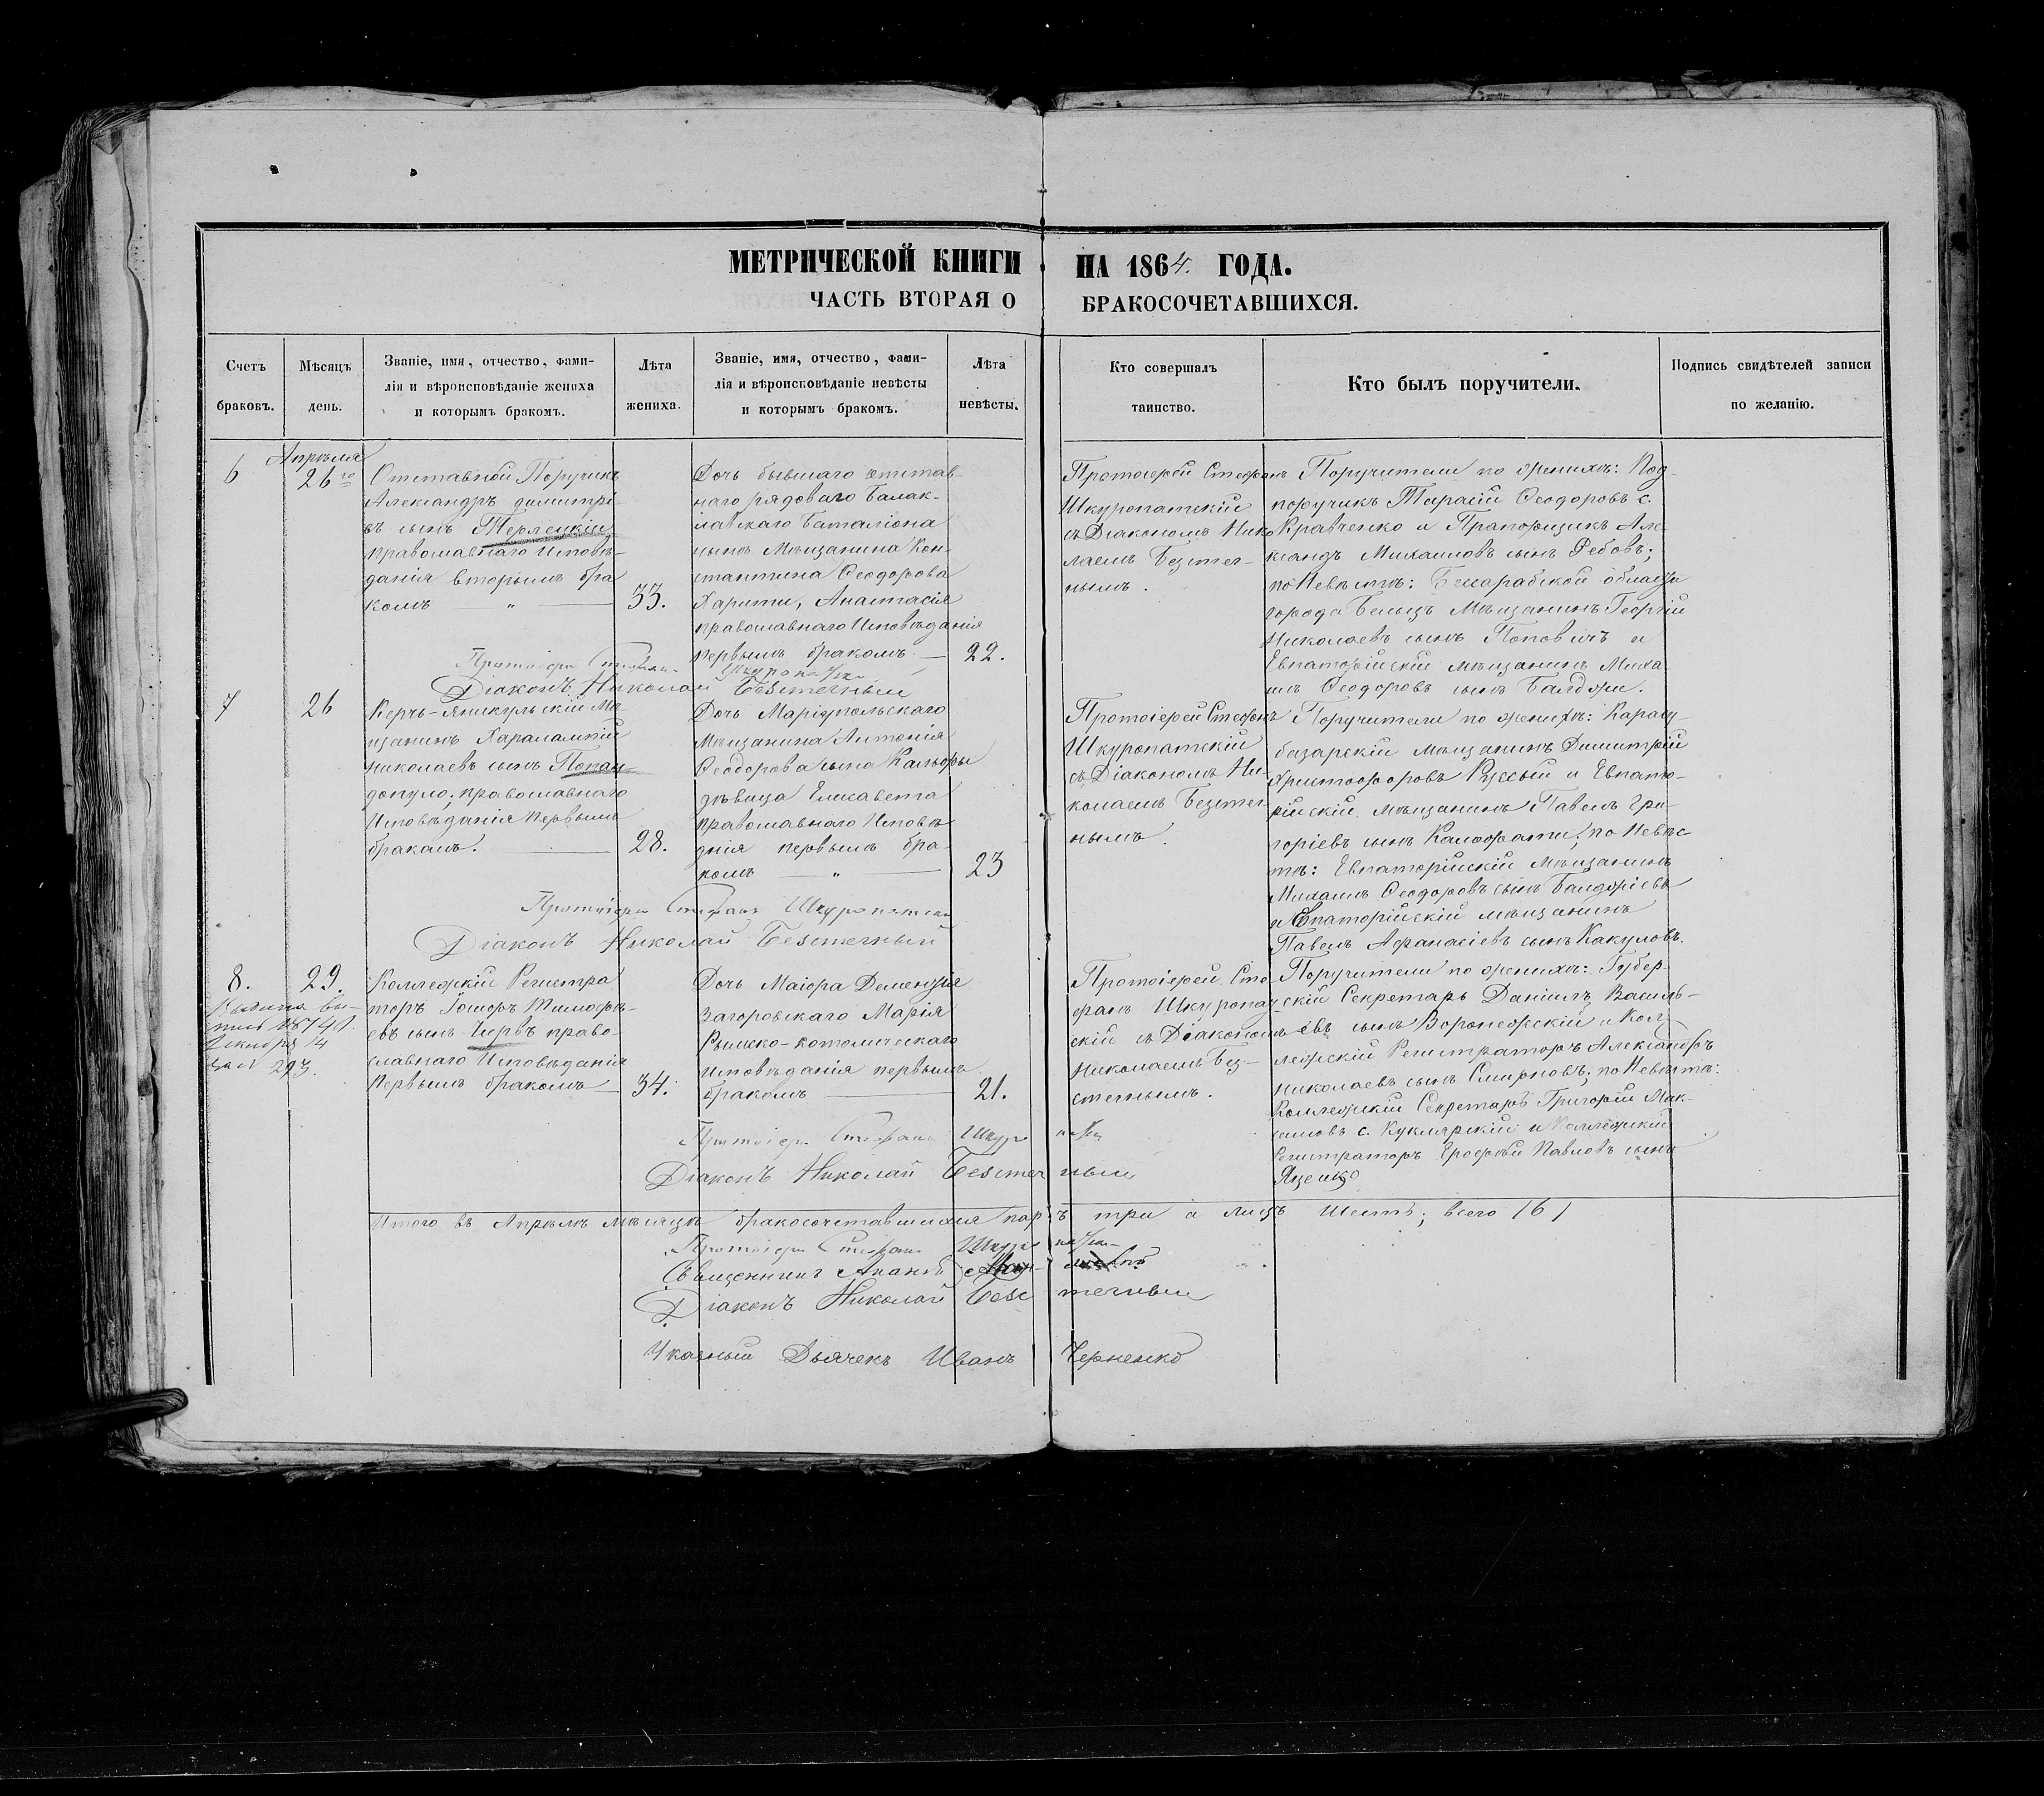 МЕТРИЧЕСКОЙ КНИГИ НА 1864. ГОДА.
ЧАСТЬ ВТОРАЯ О БРАКОСОЧЕТАВШИХСЯ.
Счетъ браковъ.
Мѣсяцъ день.
Званіе, имя, отчество, фами-
лія и вѣроисповѣданіе жениха
и которымъ бракомъ.
Лѣта жениха.
Званіе, имя, отчество, фами-
лія и вѣроисповѣданіе невѣсты
и которымъ бракомъ.
Лѣта невѣсты.
Кто совершалъ
таинство.
Кто былъ поручители.
Подпись свидѣтелей записи
по желанію.
6
Апрѣля
26го
Отставной Поручикъ
Александръ димитрі
въ сынъ Терлецкій
православнаго исповѣ-
данія вторымъ бра
комъ „ —
33.
Дочь бывшаго отстав-
наго рядоваго Балак-
лавскаго баталіона
нынѣ Мѣщанина Кон-
стантина Ѳеодорова
Харити, Анастасія
православнаго исповѣданія
первымъ бракомъ —
22.
Протоіерей Стефанъ
Шкуропатскій
съ Діакономъ Нико
лаемъ Безтеч-
нымъ.
Поручители по женихѣ: Под-
поручикъ Тарасій Ѳеодоровъ с.
Кравченко и Прапорщикъ Але
ксандъ Михаиловъ сынъ Фебовъ;
по Невѣстѣ: Бессарабской области
города Бельцъ Мѣщанинъ Георгій
Николаевъ сынъ Поповичъ и
Евпаторійскій мѣщанинъ Миха
илъ Ѳеодоровъ сынъ Балджи.
Діаконъ Николай Безтечный
7
26
Керчь-Яникульскій Мѣ
щанинъ Харалампій
николаевъ сынъ Попан-
допуло, православнаго
исповѣданія первымъ
бракомъ. —
28.
Дочь Маріупольскаго
Мѣщанина Антонія
Ѳеодорова сына Кальфы
дѣвица Елисавета
православнаго исповѣ
днія первымъ бра-
комъ — „ —
23
Протоіерей Стефанъ
Шкуропатскій
съ Діакономъ Ни-
колаемъ Безтеч-
нымъ.
Поручители по женихѣ: Карасу-
базарскій мѣщанинъ Димитрій
Христофоровъ и Евпато-
рійскій мѣщанинъ Павелъ Гри-
горіевъ сынъ по Невѣс-
тѣ: Евпаторійскій мѣщанинъ
Михаилъ Ѳеодоровъ сынъ
и Евпаторійскій мѣщанинъ
Павелъ Афанасіевъ сынъ Какуловъ.
Протоіерей Стефанъ Шкуропатскій
Діаконъ Николай Безтечный
8.
29.
274
Декабря 14
за № 293.
Коллежскій Регистра
торъ Іосифъ Тимофѣ-
евъ сынъ Червъ право-
славнаго исповѣданія
первымъ бракомъ —
34.
Дочь Маіора Дементія
Загоровскаго Марія
Римско-католическаго
исповѣданія первымъ
бракомъ —
21.
Протоіерей Сте
фанъ Шкуропат
скій съ Діакономъ
Николаемъ Без-
стечнымъ.
Поручители по женихѣ: Губер-
скій Секретарь Даніилъ Василь-
евъ сынъ Воронежскій и Кол-
лежскій Регистраторъ Александръ
Николаевъ сынъ Смирновъ; по Невѣстѣ:
Коллежскій Секретарь Григорій Мак-
симовъ с. Куклярскій и Коллежскій
Регистраторъ Ерофѣй Павловъ сынъ
Яценко
Діаконъ Николай Безтечный
Итого въ Апрѣлѣ мѣсяцѣ бракосочетавшихся паръ три а лицъ шесть; всего /6/
Священникъ
Діаконъ Николай Безтечный
Указный Дьячекъ Иванъ Черненко